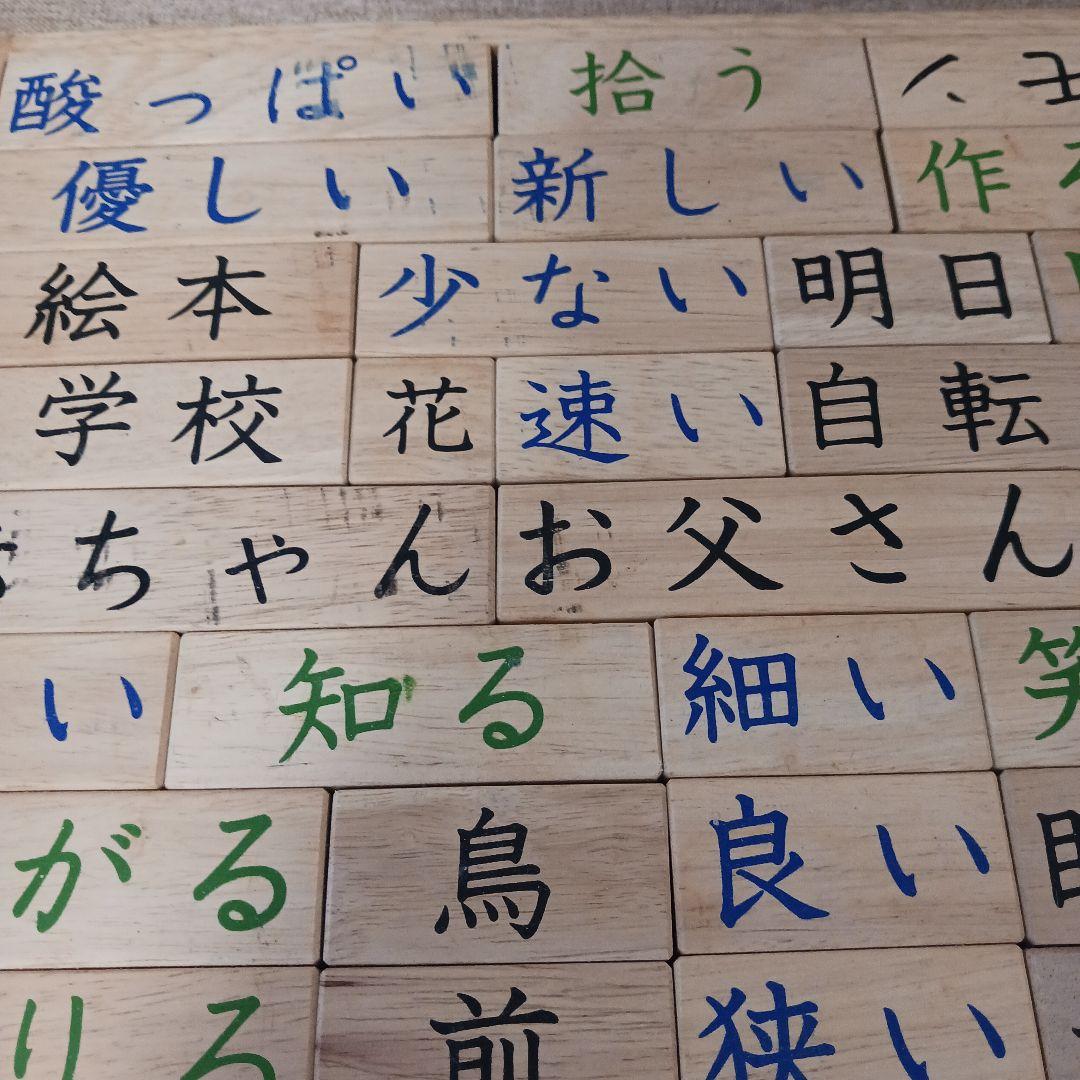 酸っぱい 拾う
優しい 新しい 作る
絵本 少ない 明日
学校 花 速い 自転
ちゃん お父さん
い 知る 細い 笑
がる 鳥 良い
りる 前 狭い